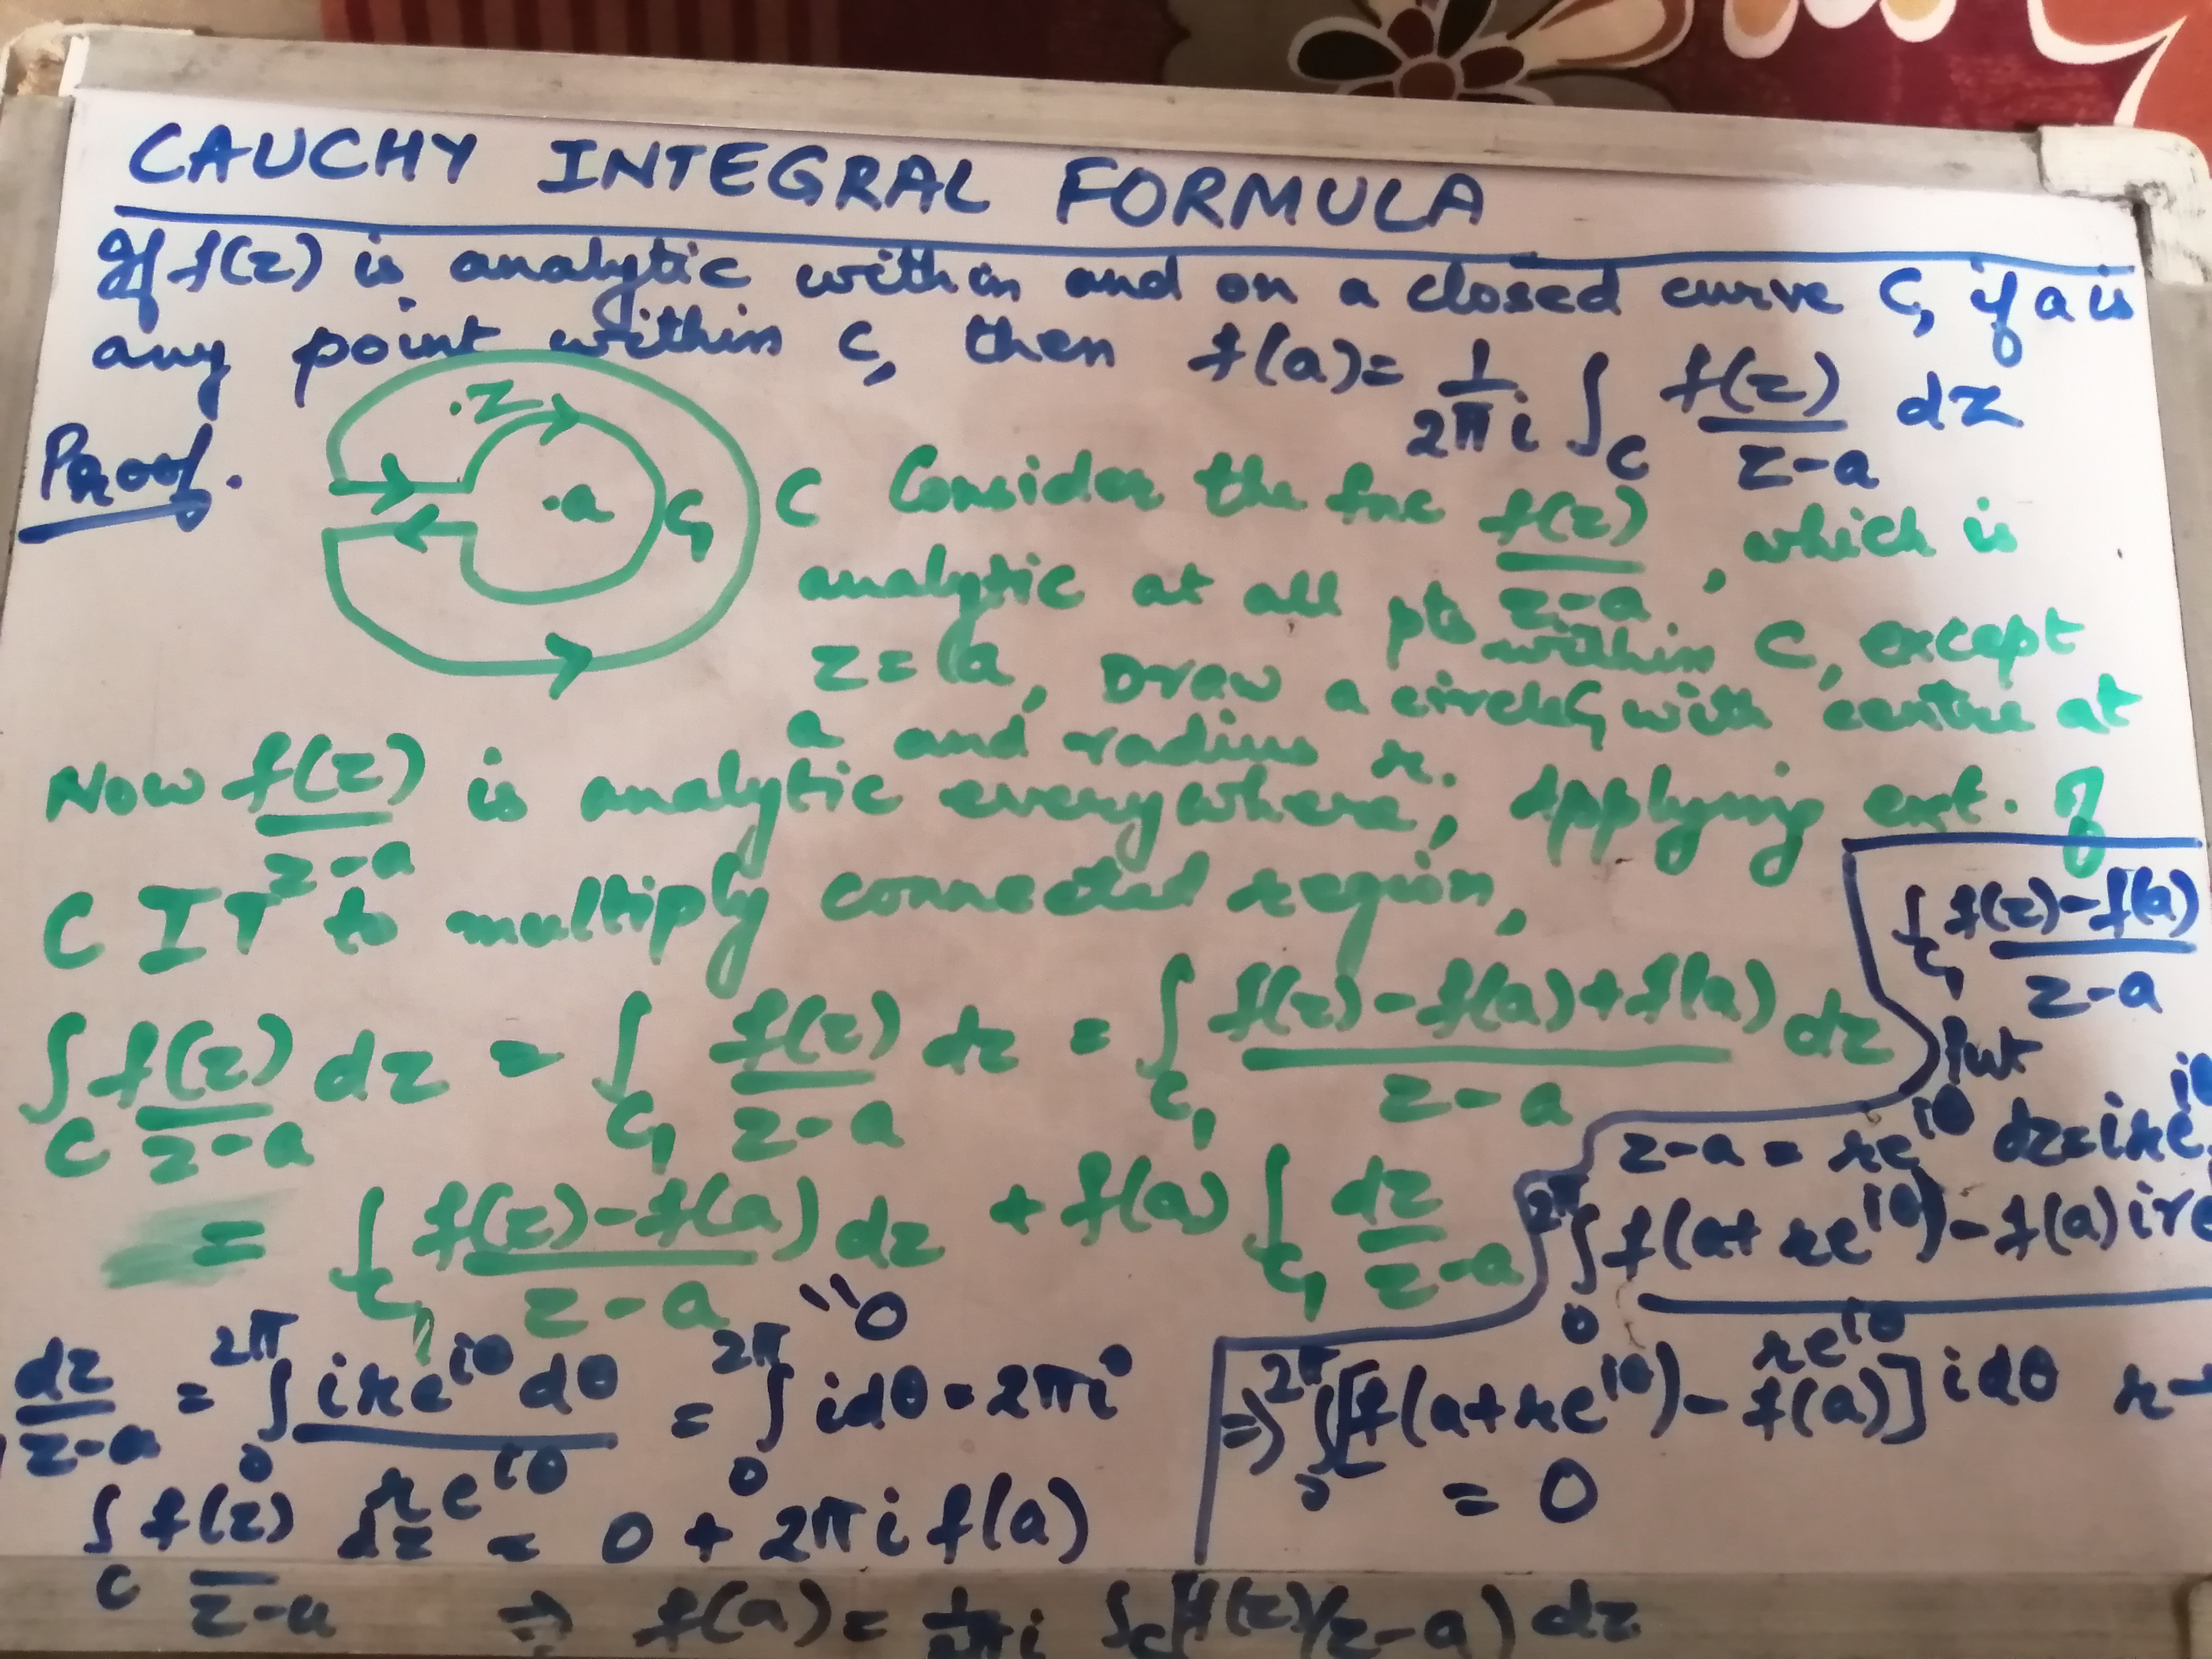 CAUCHY INTEGRAL FORMULA
If f(z) is analytic within and on a closed curve C, if a is
any point within C, then f(a) = 1/2πi ∫_C f(z)/z-a dz
Proof.
.z
.a
C₁
C
Consider the fnc f(z)/z-a, which is
analytic at all pts within C, except
z = a, Draw a circle C₁ with centre at
a and radius r.
Now f(z)/z-a is analytic everywhere, Applying ext. of
CIT to multiply connected region,
∫_C f(z)/z-a dz = ∫_C₁ f(z)/z-a dz = ∫_C₁ f(z)-f(a)+f(a)/z-a dz
= ∫_C₁ f(z)-f(a)/z-a dz + f(a) ∫_C₁ dz/z-a
"0
dz/z-a = ∫₀^2π ire^iθ dθ/re^iθ = ∫₀^2π idθ = 2πi
∫_C f(z)/z-a dz = 0 + 2πi f(a)
⇒ f(a) = 1/2πi ∫_C (f(z)/z-a) dz
∫_C₁ f(z)-f(a)/z-a
Put
z-a = re^iθ dz = ire^iθ
∫₀^2π f(a+re^iθ)-f(a) ire/re^iθ
⇒ ∫₀^2π [f(a+re^iθ)-f(a)] idθ r→
= 0